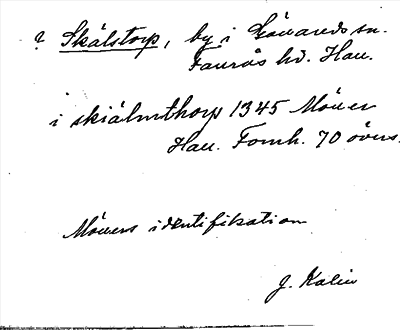 ? Skälstorp, by i Gönareds sn.
Faurås hd. Hall.
i skiälmthorp 1345 Möller
Hall. Fornh. 70 övers.
Möllers identifikation
J. Kalén